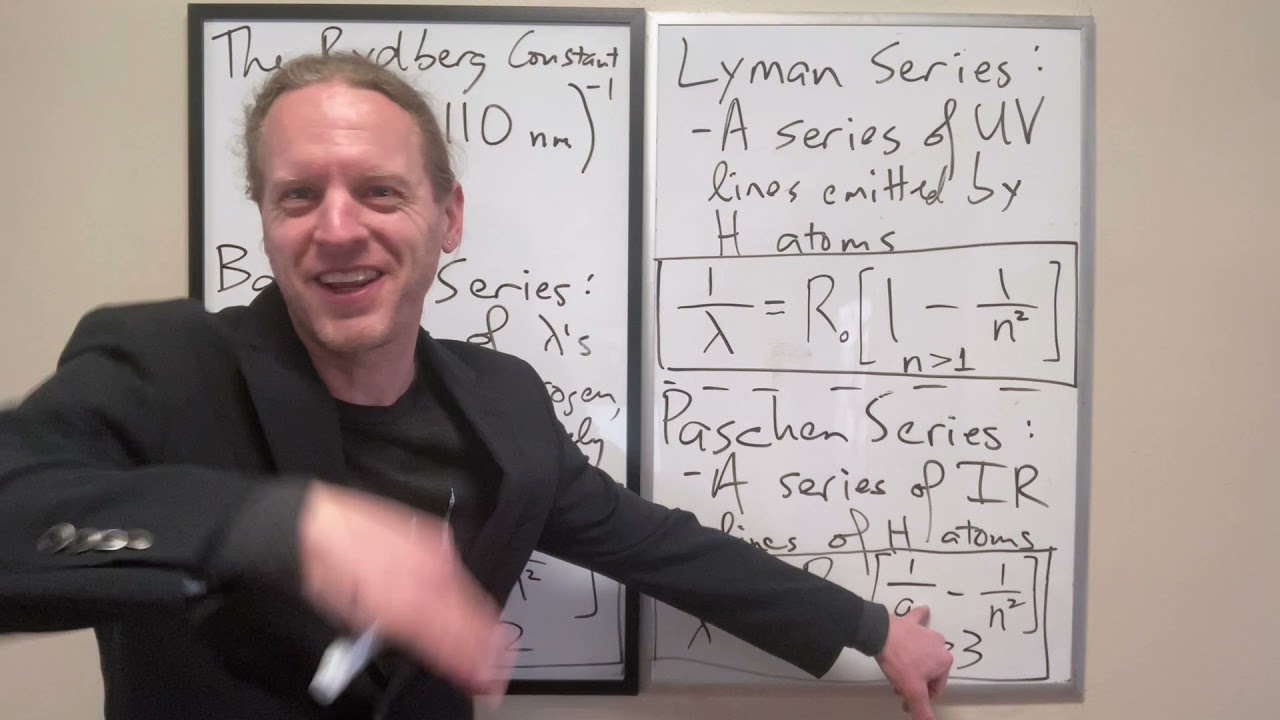 The Rydberg Constant
110 nm)⁻¹
Series:
of λ's
2
Lyman Series:
- A series of UV
lines emitted by
H atoms
1/λ = R₀[1 - 1/n²]
n>1
Paschen Series:
- A series of IR
lines of H atoms
[1/ - 1/n²]
λ
3